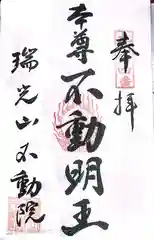 奉拝
本尊不動明王
瑞光山不動院